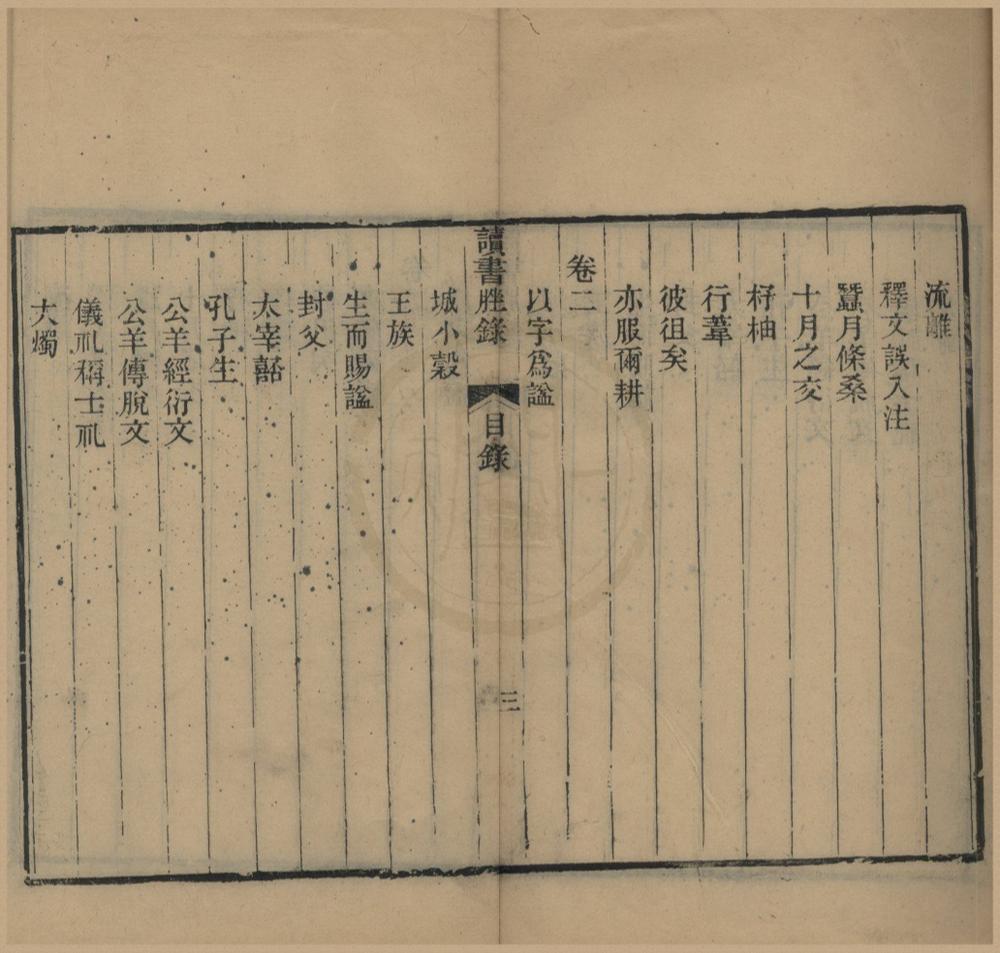 流離
釋文誤入注
蠶月條桑
十月之交
杼柚
行葦
彼徂矣
亦服爾耕
卷二
以字爲諡
讀書脞錄
目錄
三
城小穀
王族
生而賜諡
封父
太宰嚭
孔子生
公羊經衍文
公羊傳脫文
儀礼稱士礼
大燭